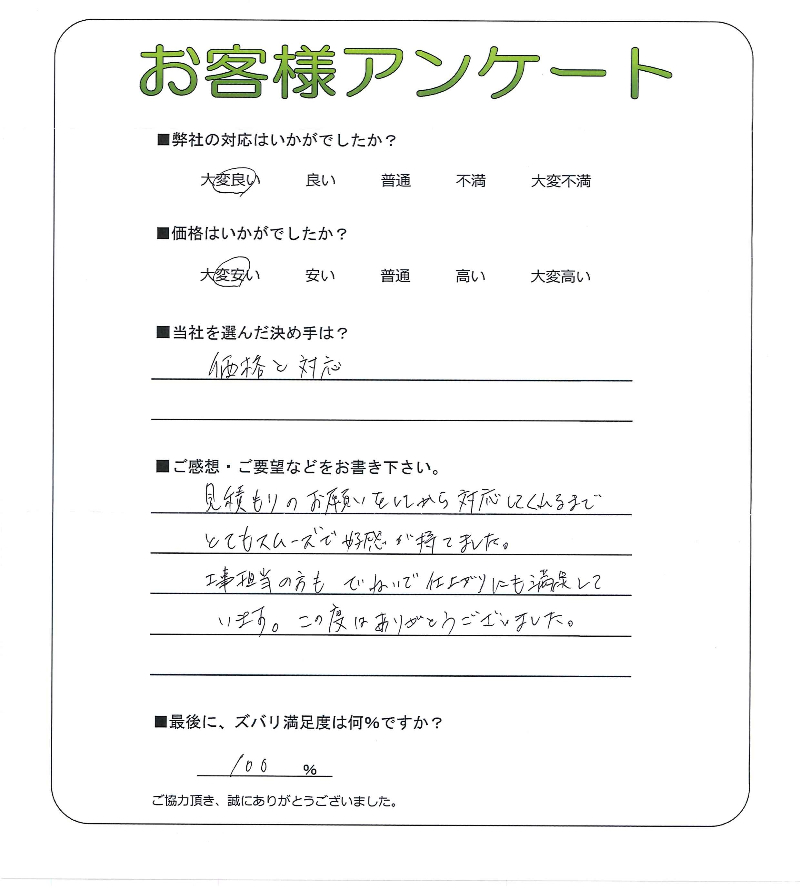 お客様アンケート
■弊社の対応はいかがでしたか？
大変良い 良い 普通 不満 大変不満
■価格はいかがでしたか？
大変安い 安い 普通 高い 大変高い
■当社を選んだ決め手は？
価格と対応
■ご感想・ご要望などをお書き下さい。
見積もりのお願いをしてから対応してくれるまで
とてもスムーズで好感が持てました。
工事担当の方もていねいで仕上がりにも満足して
います。この度はありがとうございました。
■最後に、ズバリ満足度は何%ですか？
100 %
ご協力頂き、誠にありがとうございました。